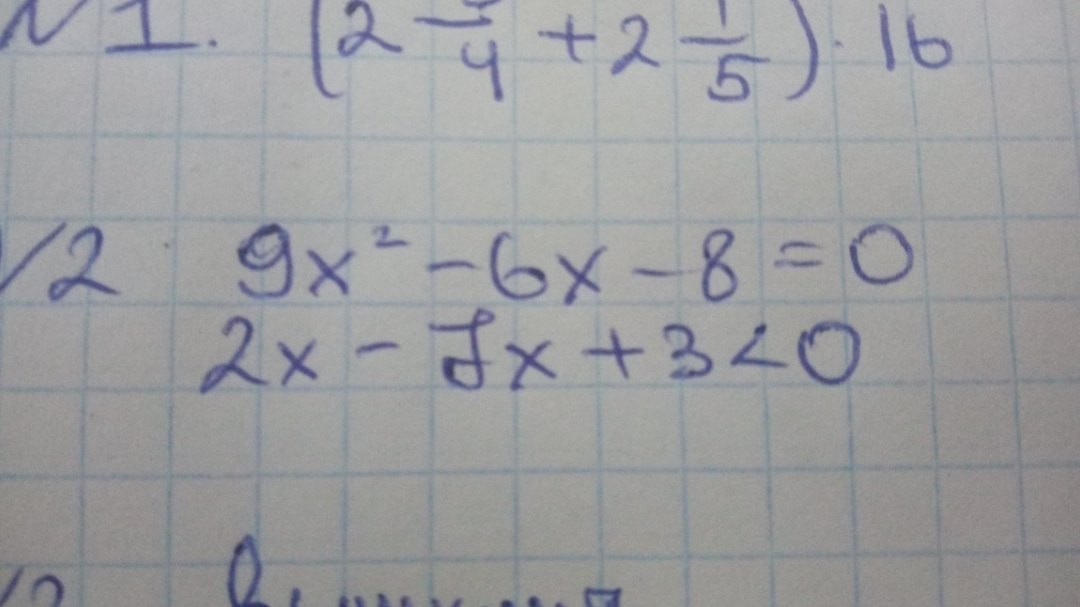 №1. (2 3/4 + 2 1/5) · 16
№2 9x² - 6x - 8 = 0
2x - 7x + 3 < 0